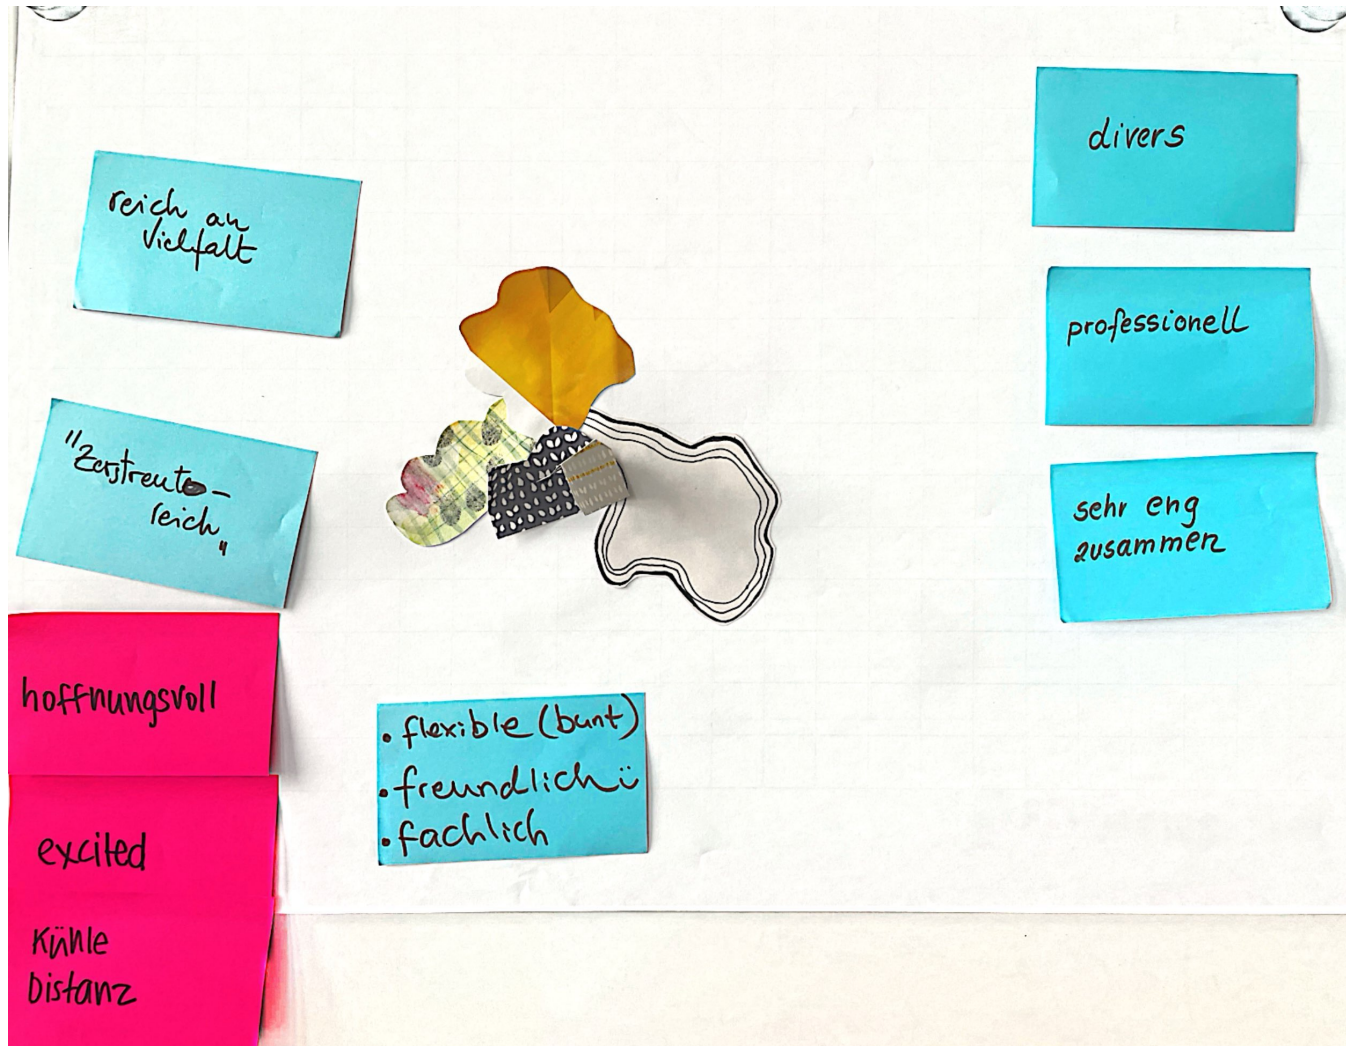 reich an
Vielfalt
"Zerstreut-
reich"
hoffnungsvoll
excited
Kühle
Distanz
• flexible (bunt)
• freundlich ü
• fachlich
divers
professionell
sehr eng
zusammen